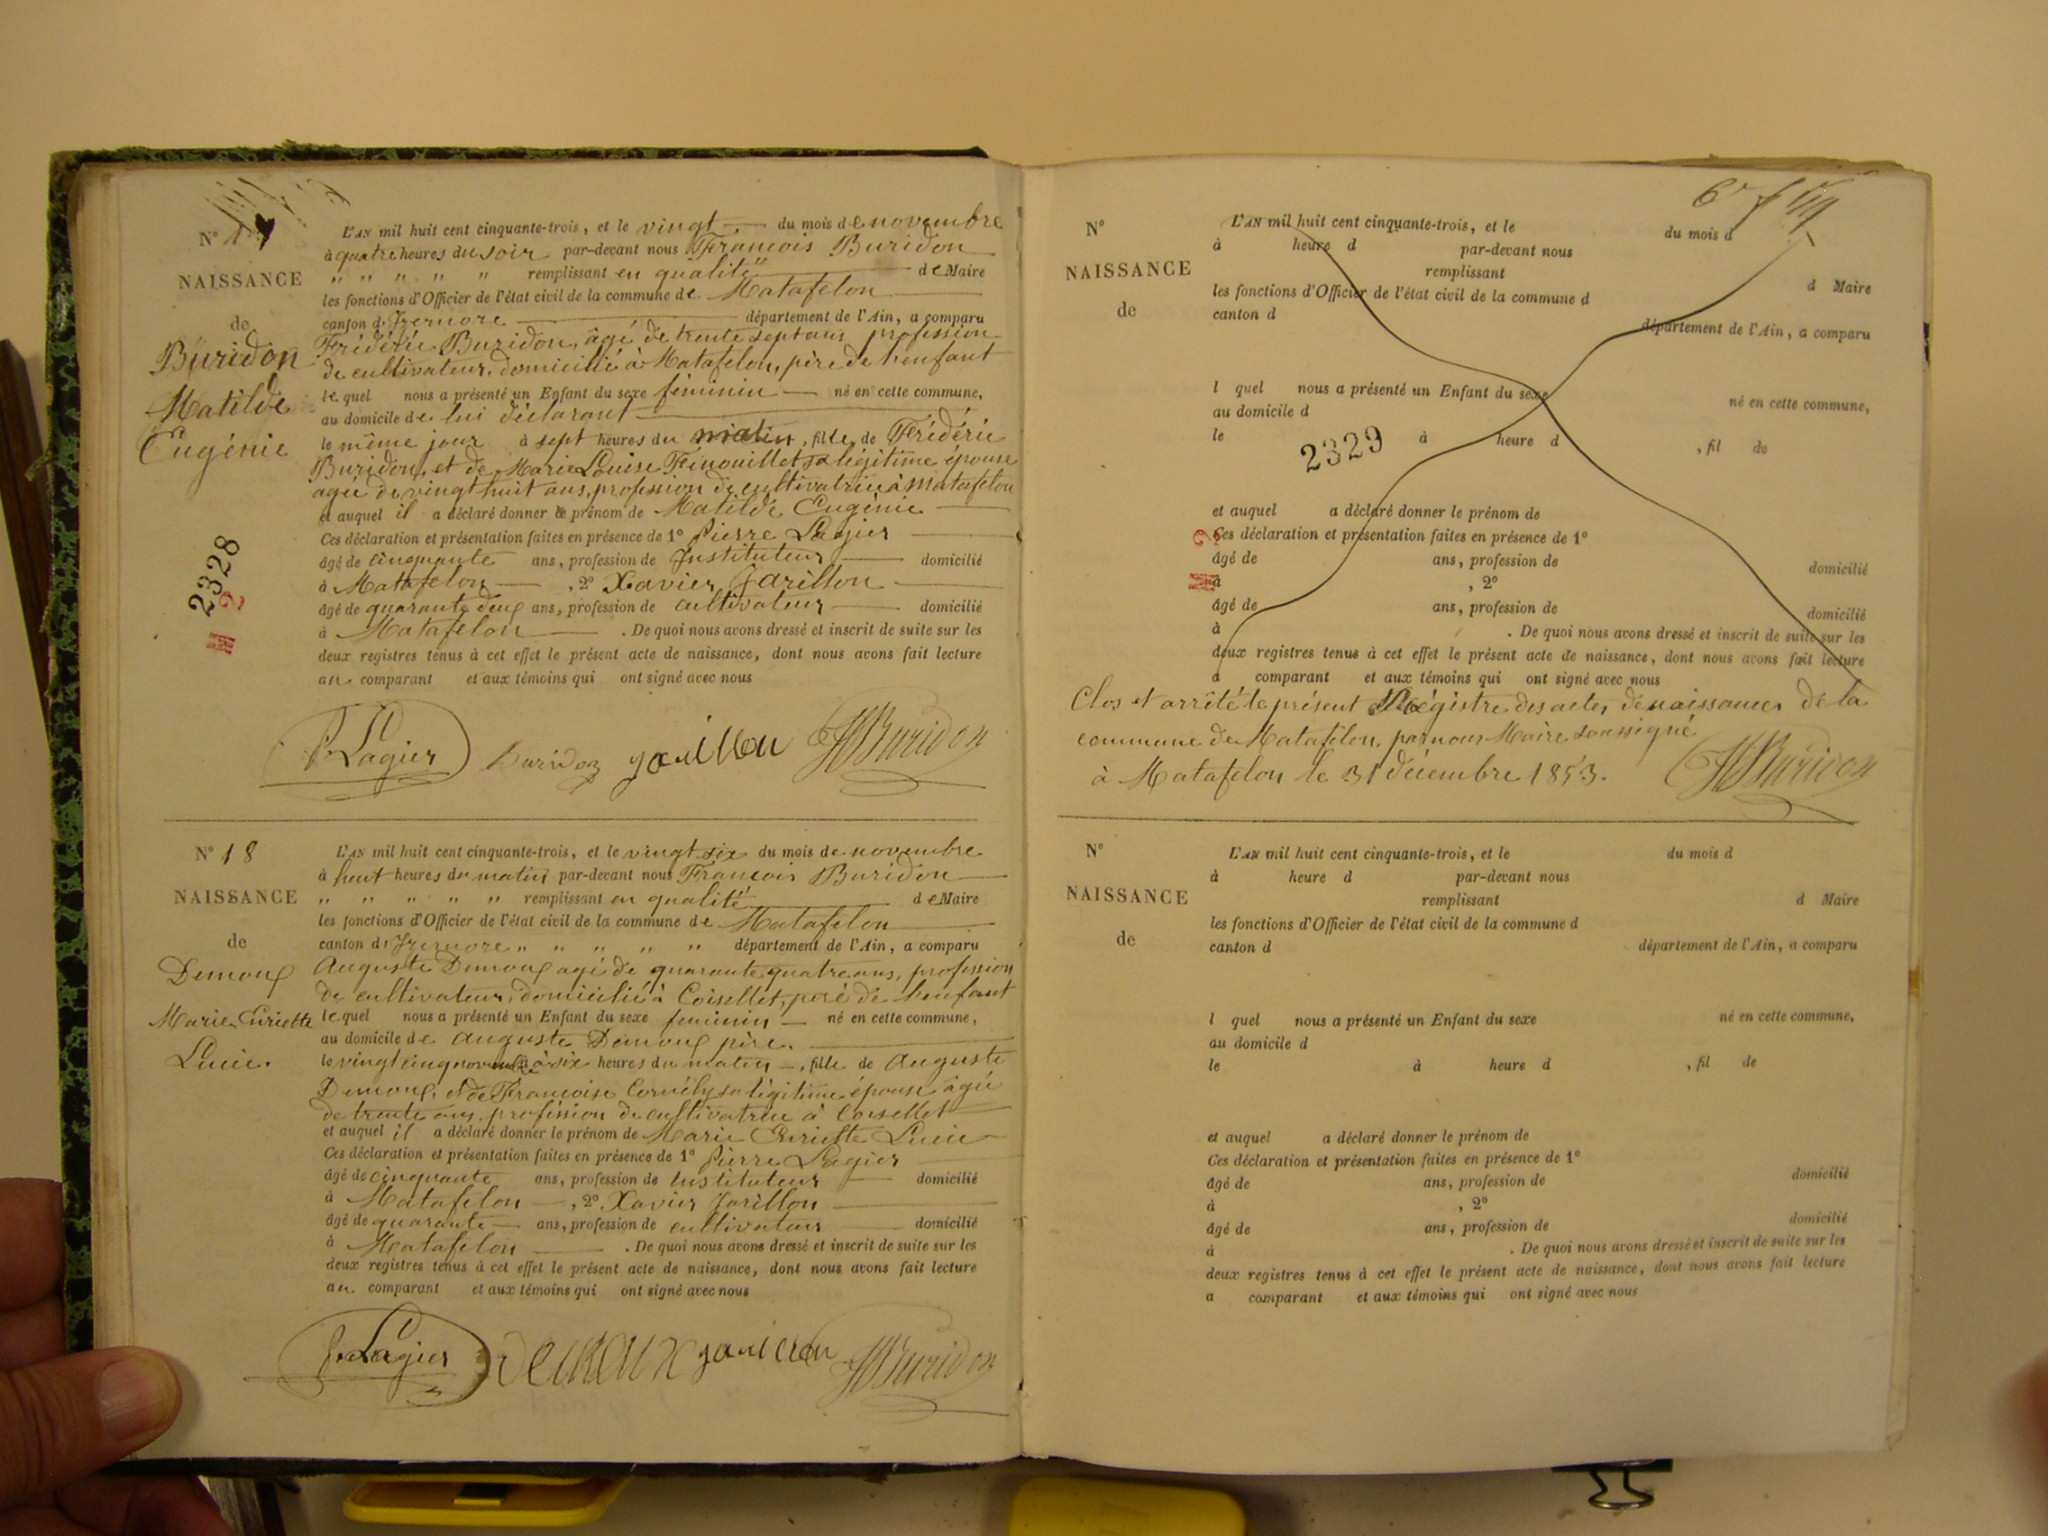 N° 17
NAISSANCE
de
Buridon
Matilde
Eugénie
2328
2
L'AN mil huit cent cinquante-trois, et le vingt du mois de novembre
à quatre heures du soir par-devant nous François Buridon
" " " " " remplissant en qualité de Maire
les fonctions d'Officier de l'état civil de la commune de Matafelon
canton d'Izernore département de l'Ain, a comparu
Frédéric Buridon, âgé de trente sept ans, profession
de cultivateur, domicilié à Matafelon, père de l'enfant
lequel nous a présenté un Enfant du sexe féminin né en cette commune,
au domicile de lui déclarant
le même jour à sept heures du matin, fille de Frédéric
Buridon, et de Marie Louise Fenouillet sa légitime épouse
agée de vingt huit ans, profession de cultivatrice à Matafelon
et auquel il a déclaré donner le prénom de Matilde Eugénie
Ces déclaration et présentation faites en présence de 1° Pierre Lagier
âgé de cinquante ans, profession de Instituteur domicilié
à Matafelon, 2° Xavier Jarillon
âgé de quarante deux ans, profession de cultivateur domicilié
à Matafelon. De quoi nous avons dressé et inscrit de suite sur les
deux registres tenus à cet effet le présent acte de naissance, dont nous avons fait lecture
au comparant et aux témoins qui ont signé avec nous
P. Lagier Buridon jarillon Buridon
N° 18
NAISSANCE
de
Demoux
Marie Curiette
Lucie.
L'AN mil huit cent cinquante-trois, et le vingt six du mois de novembre
à heut heures du matin par-devant nous François Buridon
" " " " " remplissant en qualité de Maire
les fonctions d'Officier de l'état civil de la commune de Matafelon
canton d'Izernore " " " " " département de l'Ain, a comparu
Auguste Demoux agé de quarante quatre ans, profession
de cultivateur, domicilié à Coisellet, père de l'enfant
lequel nous a présenté un Enfant du sexe feminin né en cette commune,
au domicile de Auguste Demoux père.
le vingt cinq novembre à six heures du matin, fille de Auguste
Demoux, et de Françoise Cornély sa légitime épouse âgée
de trente ans, profession de cultivatrice à Coisellet
et auquel il a déclaré donner le prénom de Marie Curiette Lucie
Ces déclaration et présentation faites en présence de 1° Pierre Lagier
âgé de cinquante ans, profession de Instituteur domicilié
à Matafelon, 2° Xavier Jarillon
âgé de quarante ans, profession de cultivateur domicilié
à Matafelon. De quoi nous avons dressé et inscrit de suite sur les
deux registres tenus à cet effet le présent acte de naissance, dont nous avons fait lecture
au comparant et aux témoins qui ont signé avec nous
P. Lagier demoux jarillon Buridon
N°
NAISSANCE
de
L'AN mil huit cent cinquante-trois, et le du mois d
à heure d par-devant nous
remplissant d Maire
les fonctions d'Officier de l'état civil de la commune d
canton d département de l'Ain, a comparu
l quel nous a présenté un Enfant du sexe né en cette commune,
au domicile d
le à heure d , fil de
2329
et auquel a déclaré donner le prénom de
Ces déclaration et présentation faites en présence de 1°
âgé de ans, profession de domicilié
à , 2°
âgé de ans, profession de domicilié
à . De quoi nous avons dressé et inscrit de suite sur les
deux registres tenus à cet effet le présent acte de naissance, dont nous avons fait lecture
a comparant et aux témoins qui ont signé avec nous
Clos et arrêté le présent Régistre des actes de naissances de la
commune de Matafelon, par nous Maire soussigné
à Matafelon le 31 décembre 1853. Buridon
N°
NAISSANCE
de
L'AN mil huit cent cinquante-trois, et le du mois d
à heure d par-devant nous
remplissant d Maire
les fonctions d'Officier de l'état civil de la commune d
canton d département de l'Ain, a comparu
l quel nous a présenté un Enfant du sexe né en cette commune,
au domicile d
le à heure d , fil de
et auquel a déclaré donner le prénom de
Ces déclaration et présentation faites en présence de 1°
âgé de ans, profession de domicilié
à , 2°
âgé de ans, profession de domicilié
à . De quoi nous avons dressé et inscrit de suite sur les
deux registres tenus à cet effet le présent acte de naissance, dont nous avons fait lecture
a comparant et aux témoins qui ont signé avec nous